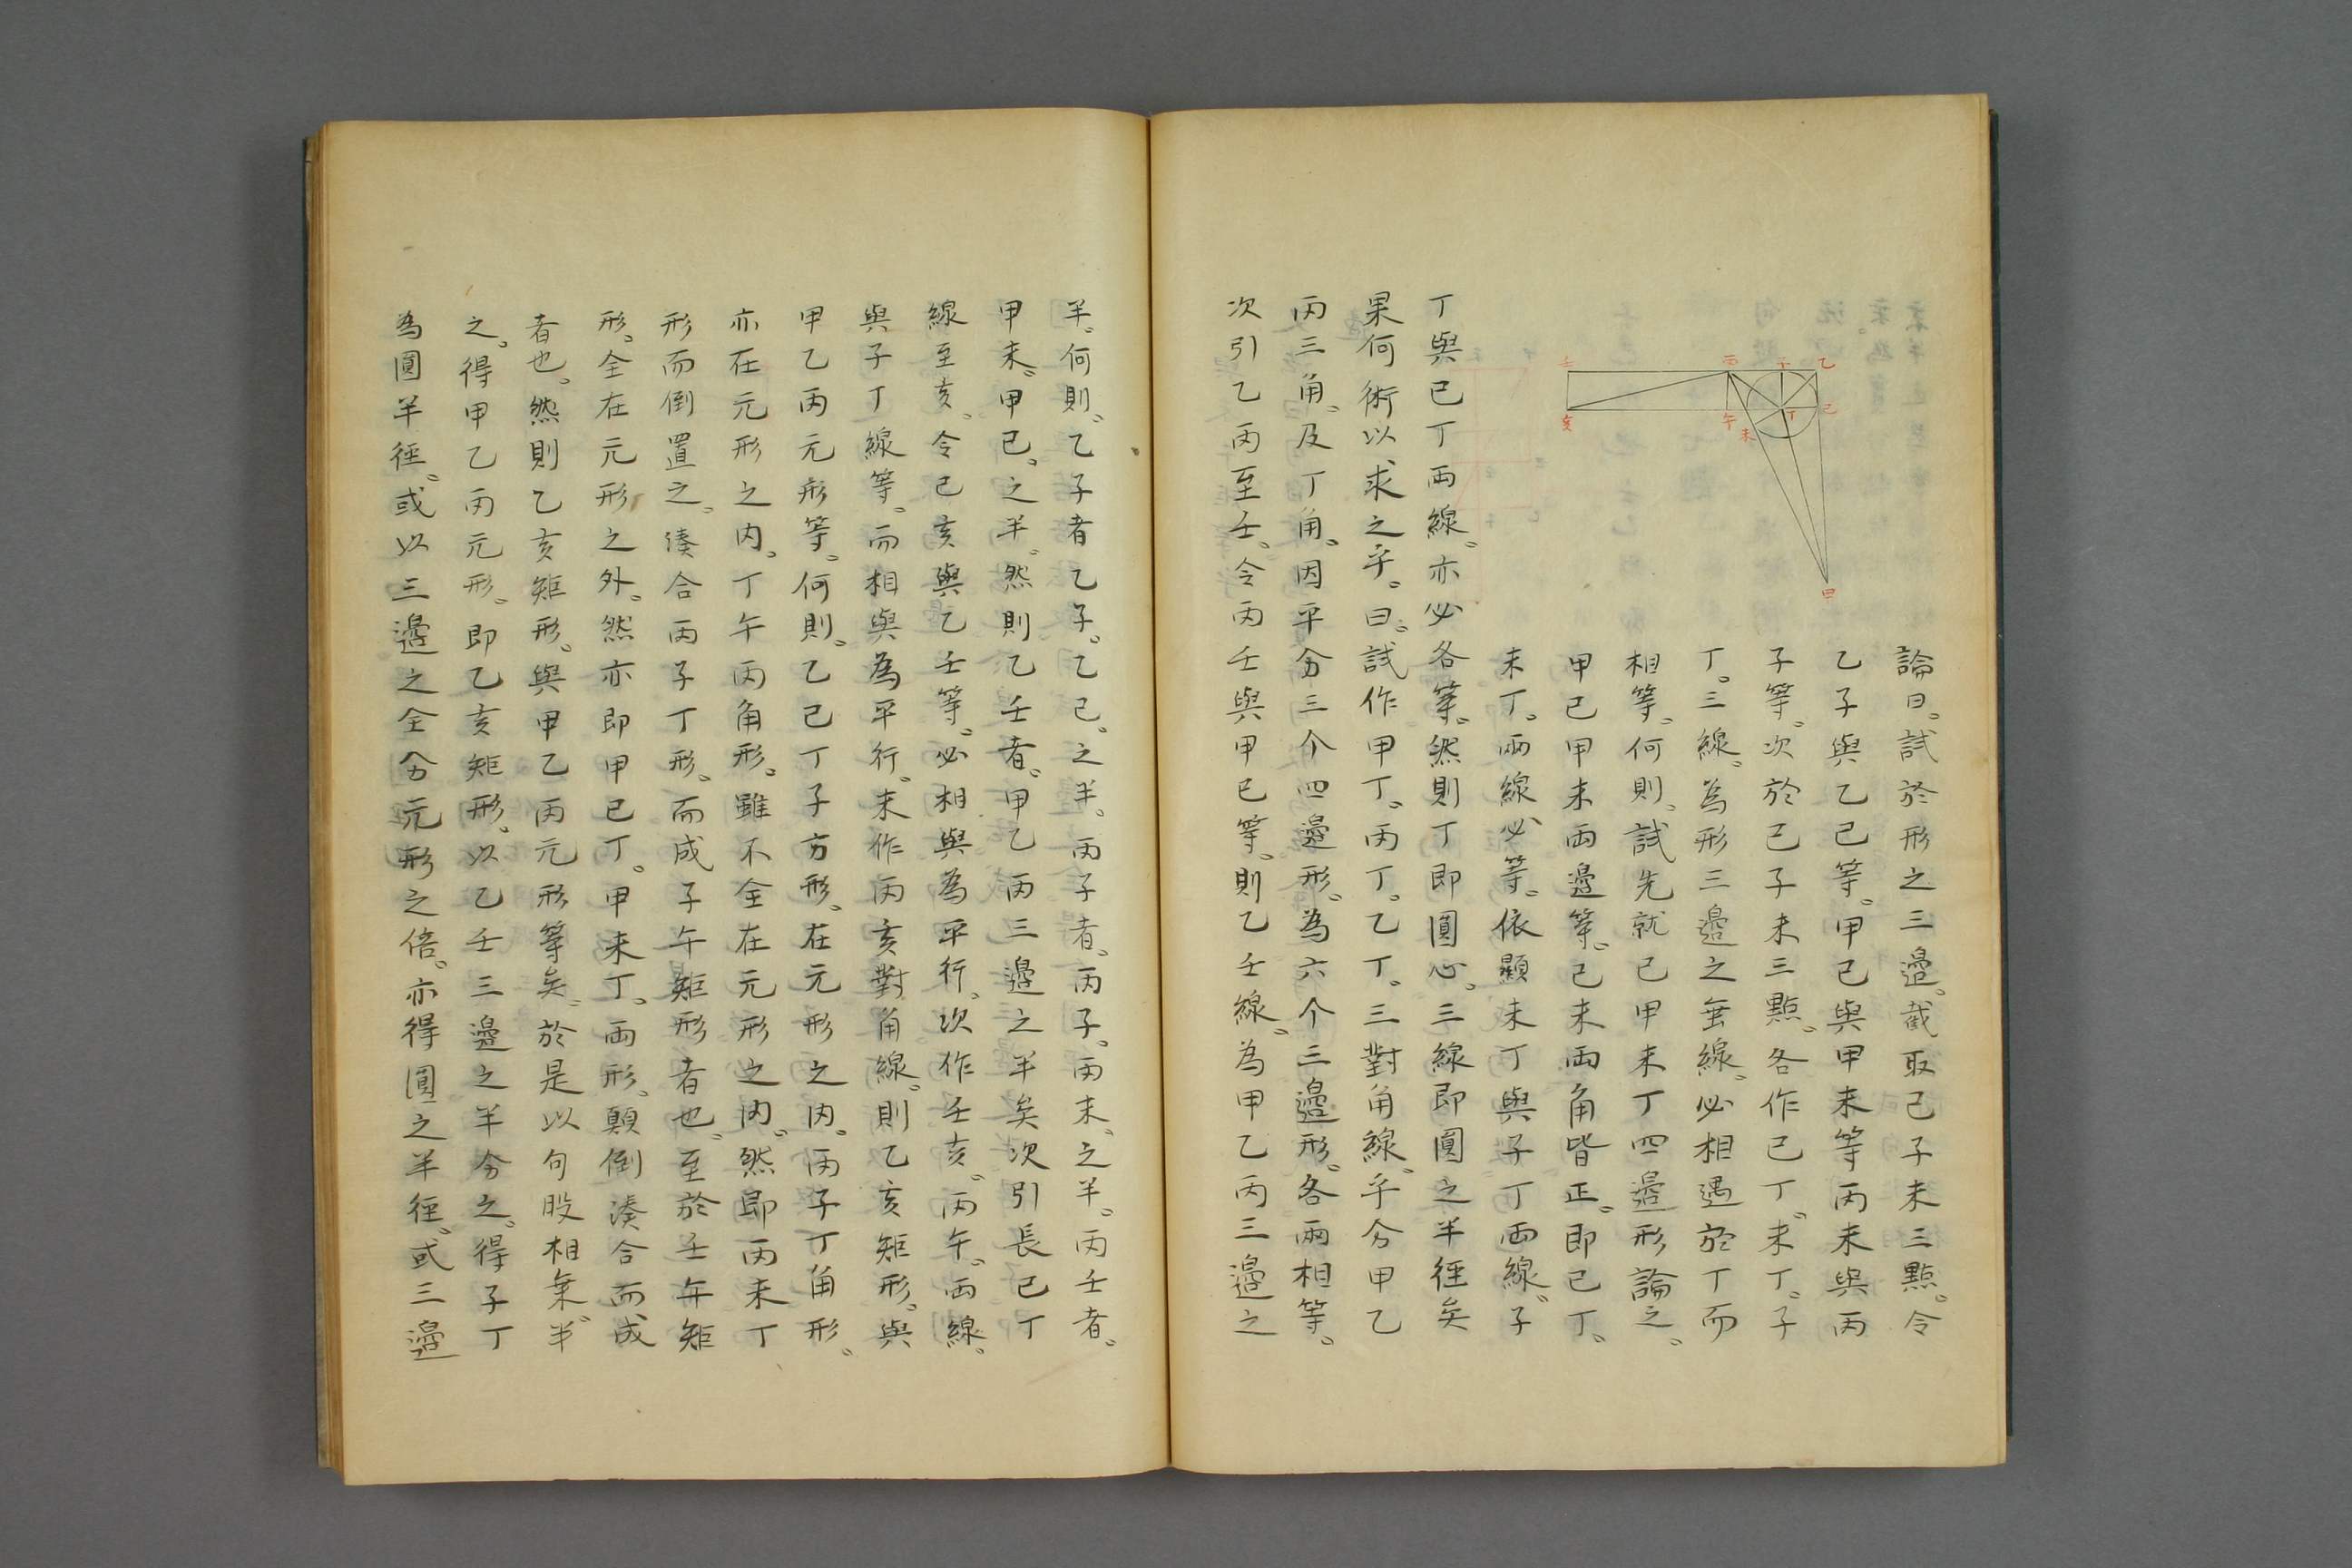 壬 丙 子 乙
亥 午 未 丁 己
甲
論曰。試於形之三邉。截取己子未三點。令
乙子與乙己等。甲己與甲未等丙未與丙
子等。次於己子未三點。各作己丁。未丁。子
丁。三線。為形三邉之垂線。必相遇於丁而
相等。何則。試先就己甲未丁四邉形論之。
甲己甲未兩邉等。己未兩角皆正。即己丁。
未丁。兩線必等。依顯未丁與子丁兩線。子
丁與己丁兩線。亦必各等。然則丁即圓心。三線即圓之半徑矣
果何術以求之乎。曰。試作甲丁。丙丁。乙丁。三對角線。平分甲乙
丙三角。及丁角。因平分三个四邉形。為六个三邉形。各兩相等。
次引乙丙至壬。令丙壬與甲己等。則乙壬線。為甲乙丙三邉之
半。何則。乙子者乙子。乙己。之半。丙子者。丙子。丙未。之半。丙壬者。
甲未。甲己。之半。然則乙壬者。甲乙丙三邉之半矣次引長己丁
線至亥。令己亥與乙壬等。必相與為平行。次作壬亥。丙午。兩線。
與子丁線等。而相與為平行。末作丙亥對角線。則乙亥矩形。與
甲乙丙元形等。何則。乙己丁子方形。在元形之内。丙子丁角形。
亦在元形之内。丁午丙角形。雖不全在元形之内。然即丙未丁
形而倒置之。湊合丙子丁形。而成子午矩形者也。至於壬午矩
形。全在元形之外。然亦即甲己丁。甲未丁。兩形。顛倒湊合而成
者也。然則乙亥矩形。與甲乙丙元形等矣。於是以句股相乗。半
之。得甲乙丙元形。即乙亥矩形。以乙壬三邉之半分之。得子丁
為圓半徑。或以三邉之全分元形之倍。亦得圓之半徑。或三邉